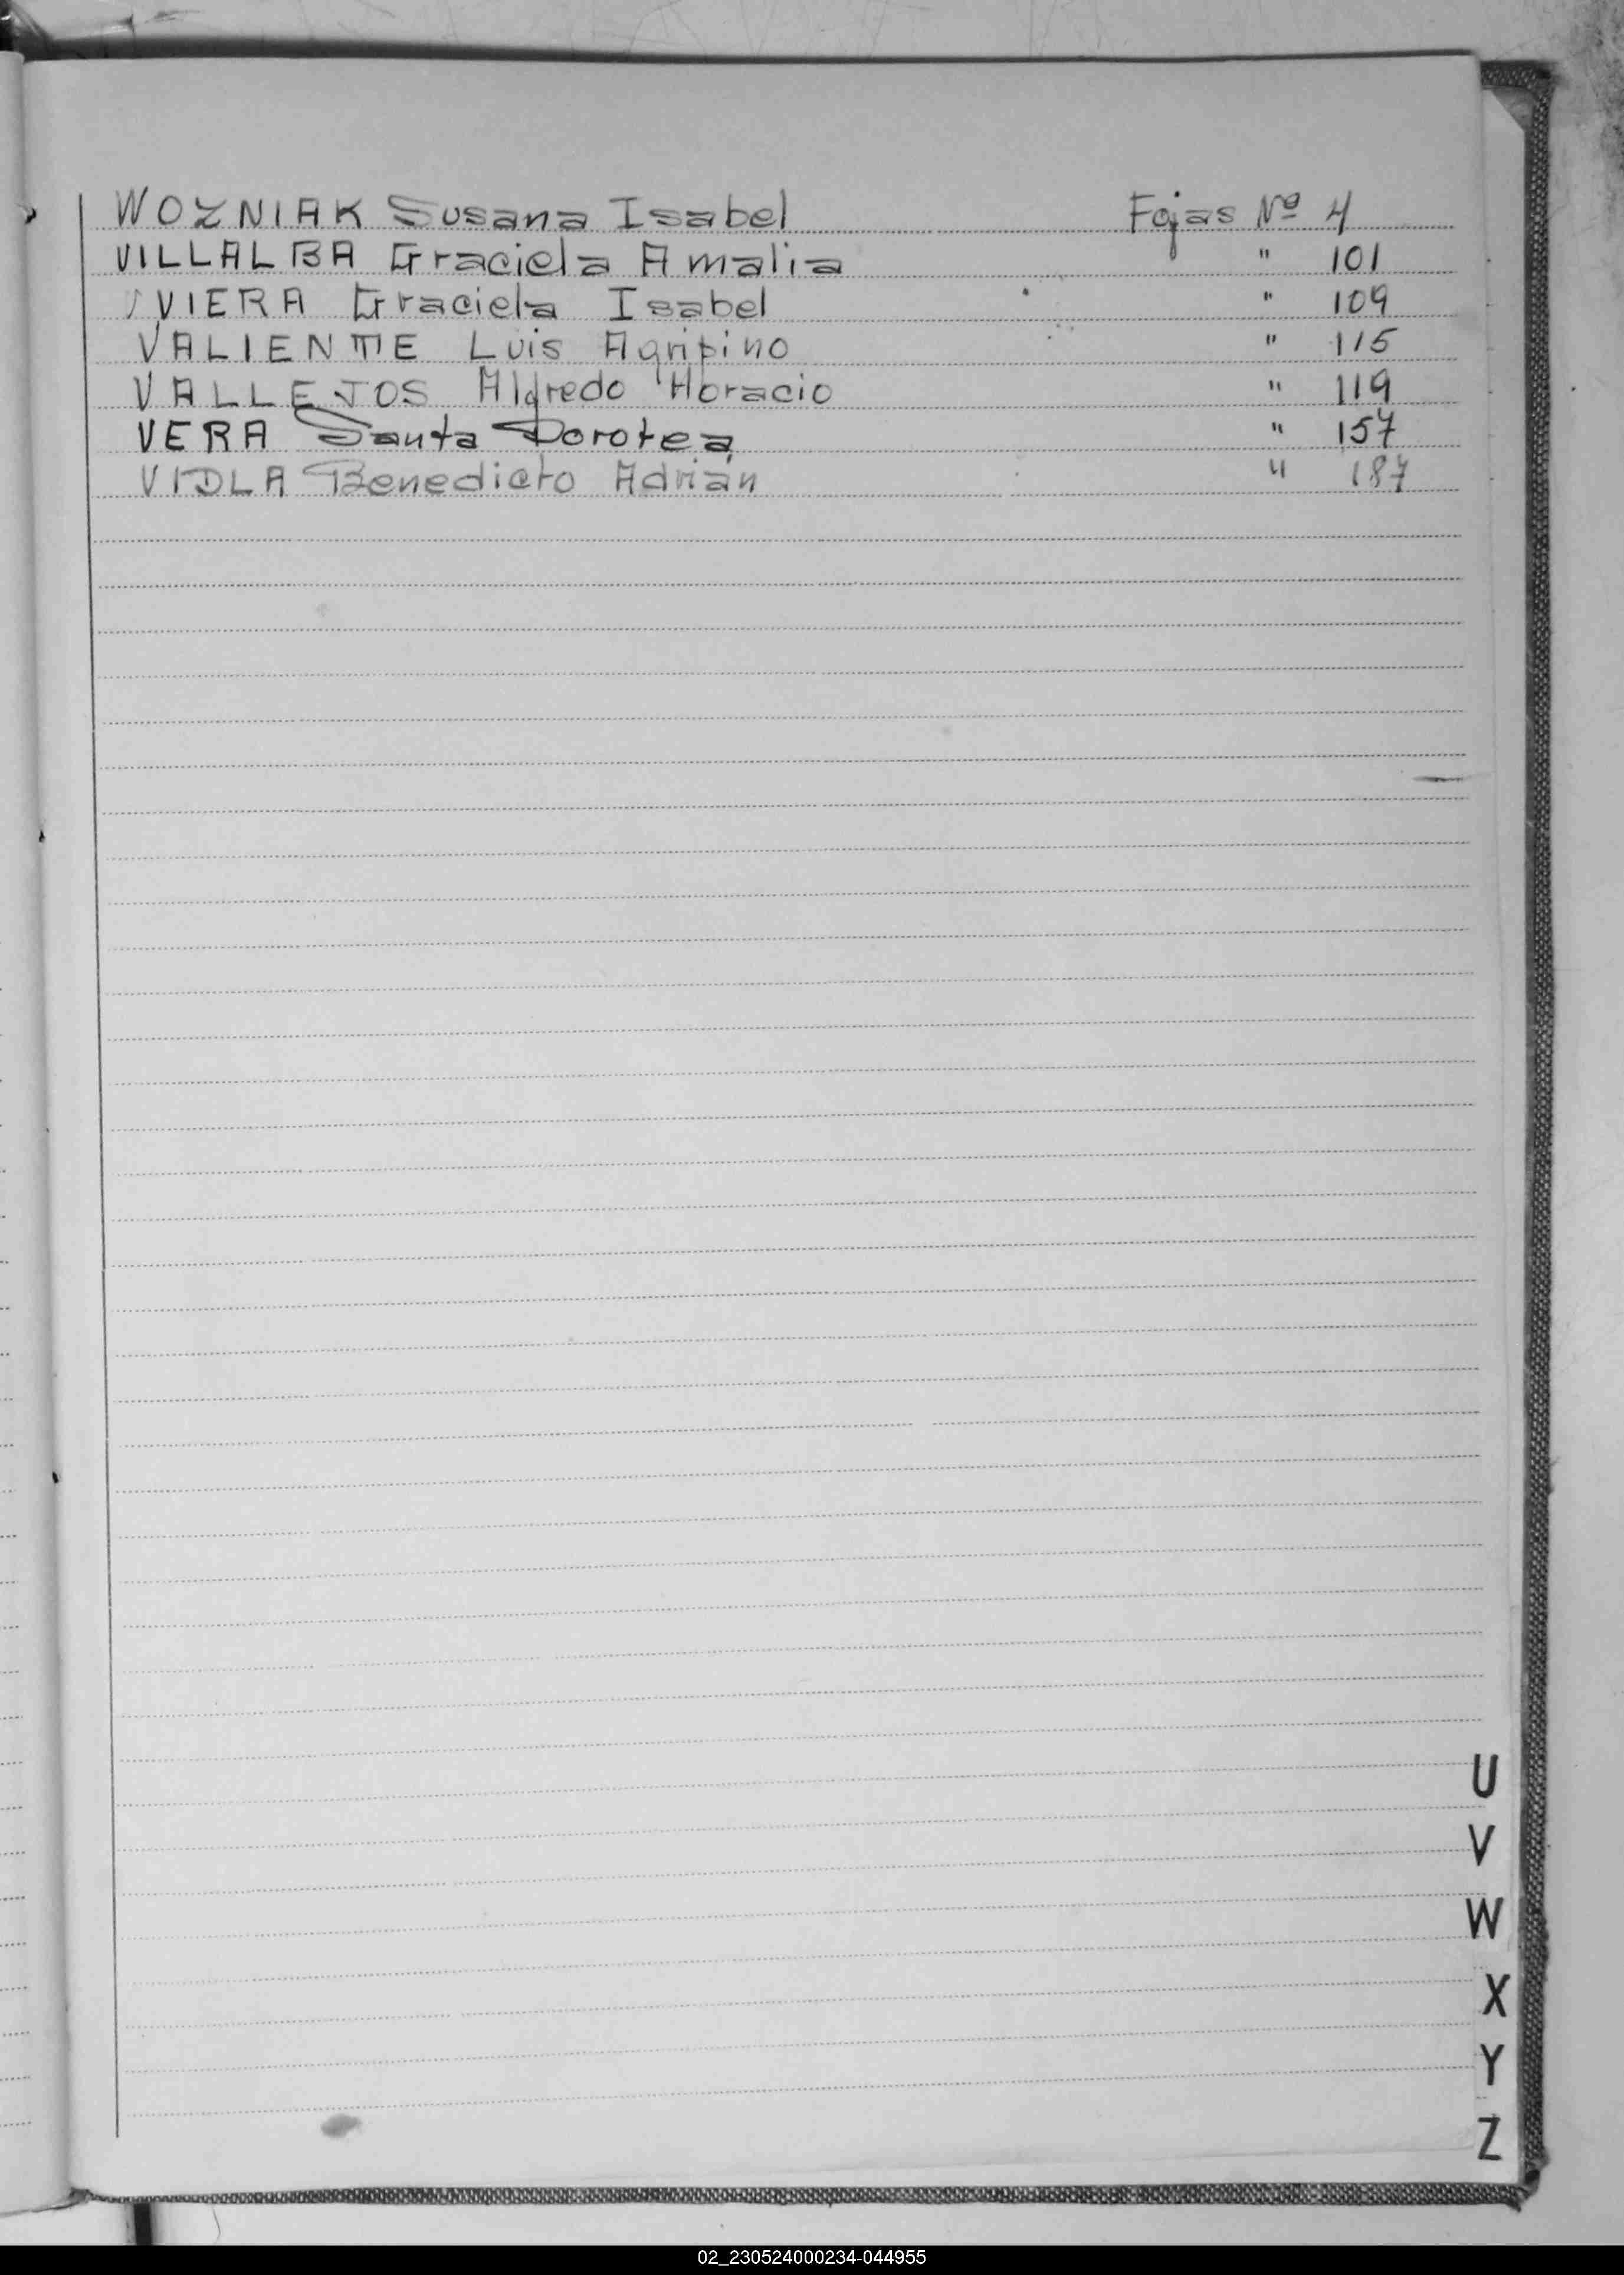 WOZNIAK Susana Isabel Fojas Nº 4
VILLALBA Graciela Amalia " 101
VIERA Graciela Isabel " 109
VALIENTE Luis Agripino " 115
VALLEJOS Alfredo Horacio " 119
VERA Santa Dorotea " 157
VIDLA Benedicto Adrián " 187
U
V
W
X
Y
Z
02_230524000234-044955